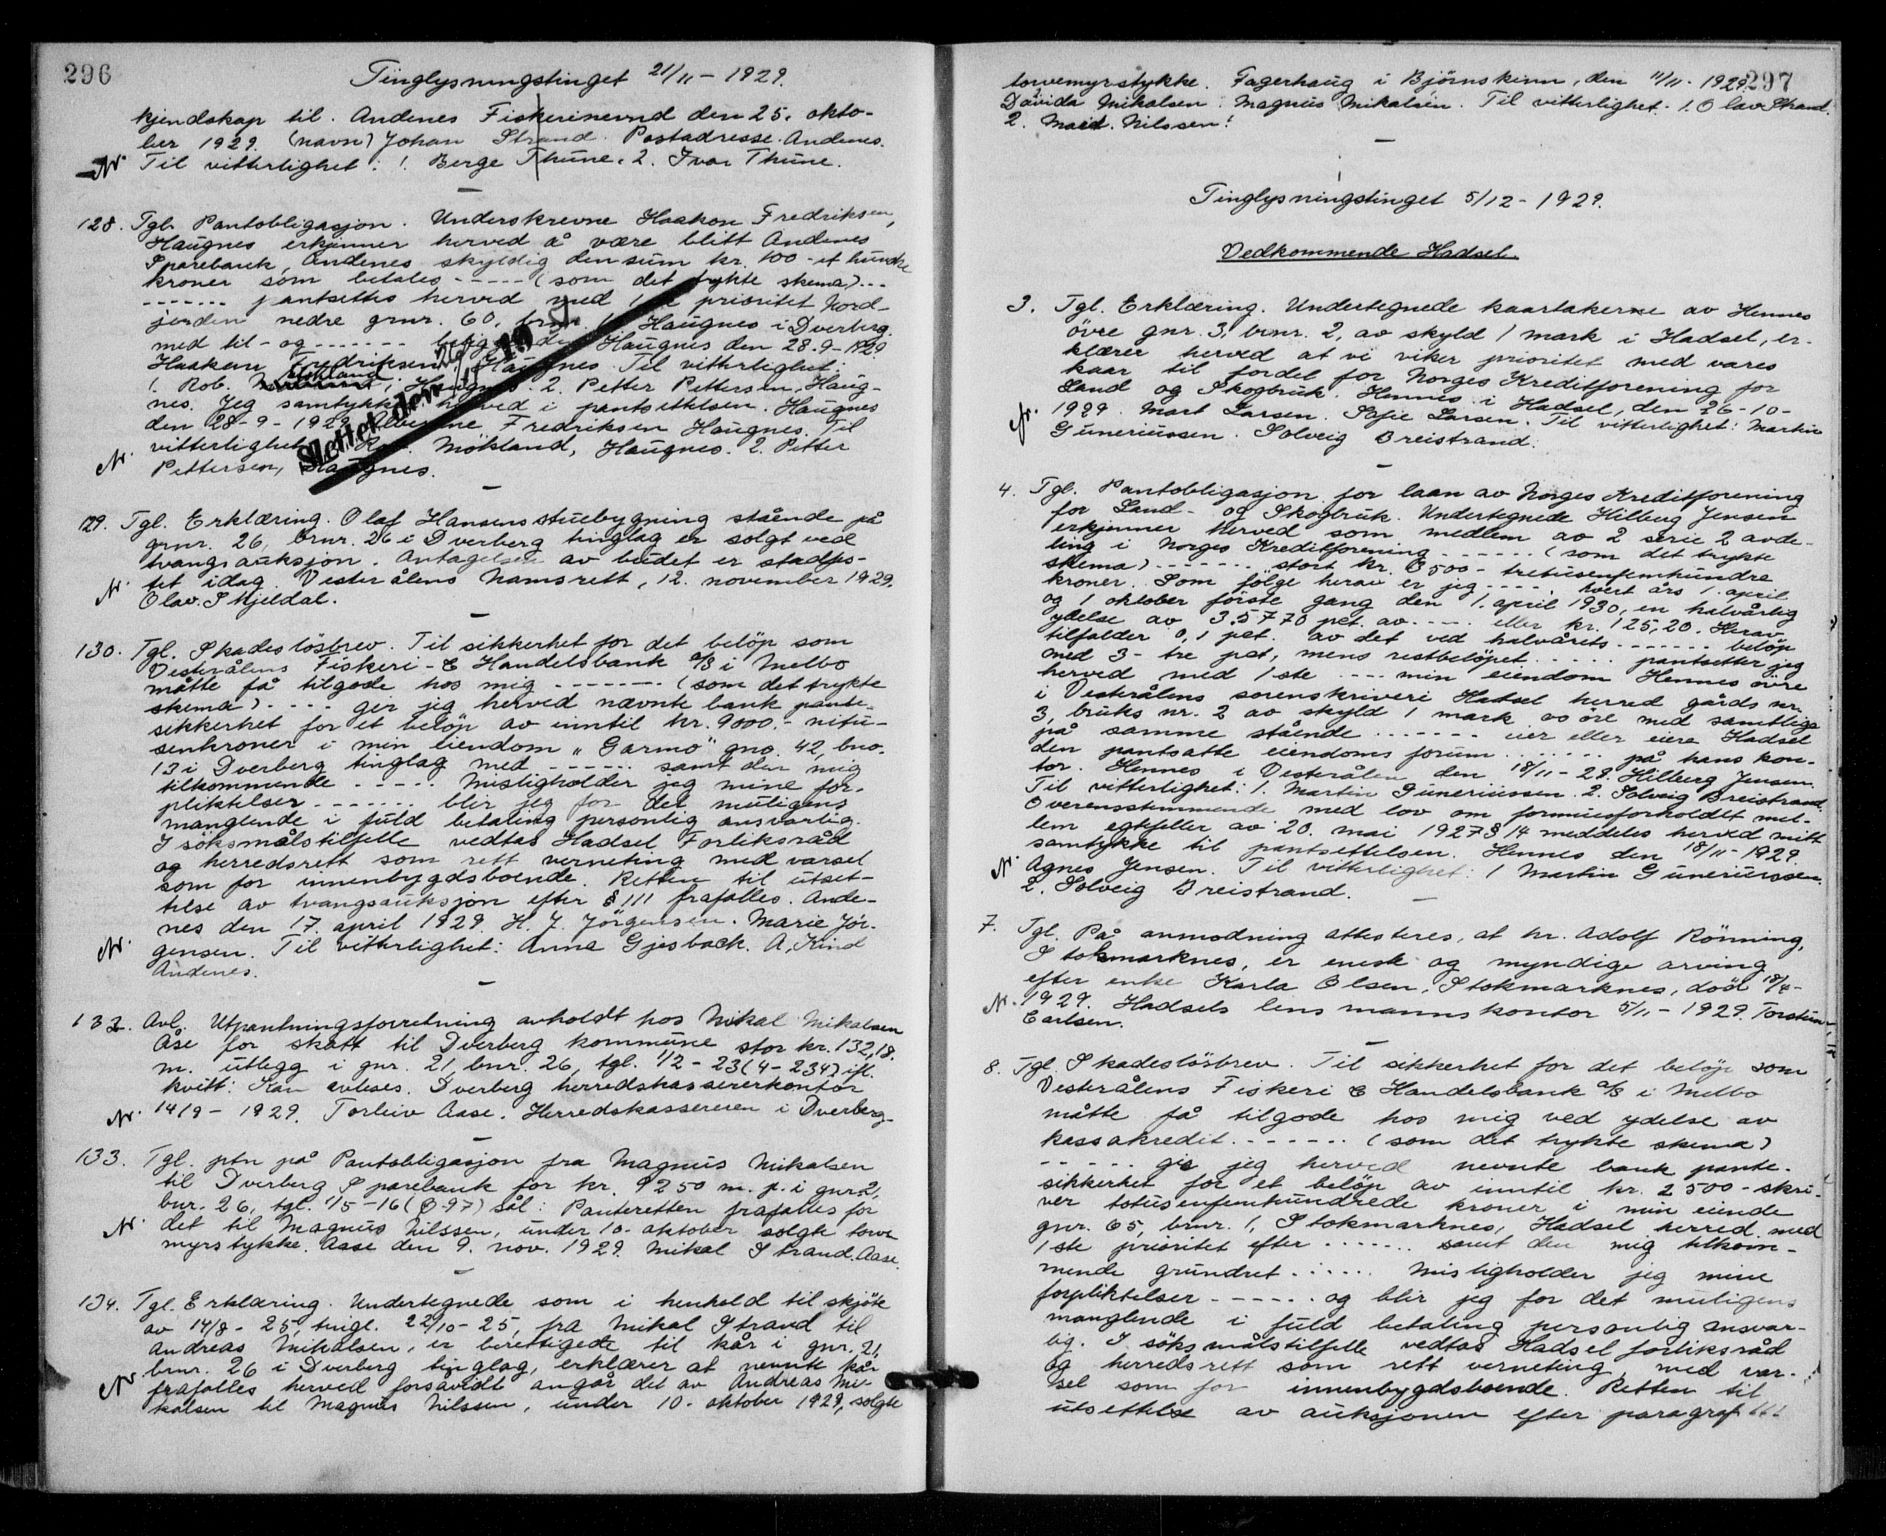 296
Tinglysningstinget 21/11 - 1929.
kjendskap til. Andenes Fiskerinevnd den 25. okto-
ber 1929. (navn) Johan Strand. Postadresse. Andenes.
Til vitterlighet: 1. Berge Thune. 2. Ivar Thune.
128. Tgl. Pantobligasjon. Underskrevne Haakon Fredriksen,
Haugnes erkjenner herved å være blitt Andenes
Sparebank, Andenes skyldig den sum kr. 100 - et hundre
kroner som betales - - - - - (som det trykte skema) ...
- - - - - - - pantsettes herved med 1ste prioritet Nord-
jorden nedre grnr. 60, brnr. Haugnes i Dverberg
med til - og - - - - - - - Haugnes den 28-9-1929
Haakon Fredriksen Haugnes. Til vitterlighet:
1. Rob. Mökland, Haugnes 2. Petter Pettersen, Haug-
nes. Jeg samtykker herved i pantsettelsen. Haugnes
den 28-9-1929. Fredriksen Haugnes. Til
vitterlighet: Rob. Mökland, Haugnes. 2. Pitter
Pettersen, Haugnes.
Slettet den 19
129. Tgl. Erklæring. Olaf Hansens stuebygning stående på
grnr. 26, brnr. 26 i Dverberg tinglag er solgt ved
tvangsauksjon. Antagelsen av budet er stadfes-
tet idag. Vesterålens Namsrett, 12. november 1929.
Olav. S Mjeldal.
130. Tgl. Skadeslösbrev. Til sikkerhet for det belöp som
Vesterålens Fiskeri- & Handelsbank A/S i Melbo
måtte få tilgode hos mig - - - - - - - (som det trykte
skema) - - - - ger jeg herved nævnte bank pante-
sikkerhet for et belöp av inntil kr. 9000.- nitu-
senkroner i min eiendom "Garmo" gno. 42, bno.
13 i Dverberg tinglag med - - - - - - samt den mig
tilkommende - - - - - Misligholder jeg mine for-
pliktelser - - - - - - blir jeg for det muligens
manglende i fuld betaling personlig ansvarlig.
I söksmålstilfelle vedtas Hadsel Forliksråd
og herredsrett som rett verneting med varsel
som for innenbygdsboende. Retten til utset-
telse av tvangsauksjon efter § 111 frafalles. Ande-
nes den 17. april 1929. H. J. Jörgensen. Marie Jör-
gensen. Til vitterlighet: Anna Gjesback. A, Kind
Andenes.
132. Avl. Utpantningsforretning avholdt hos Mikal Mikalsen
Åse for skatt til Dverberg kommune stor kr. 132,18.
m. utlegg i gnr. 21, bnr. 26, tgl. 1/2 - 23 (4-234) ifl.
kvitt: Kan avleses. Dverberg herredskassererkontor
14/9 - 1929. Torleiv Aase. Herredskassereren i Dverberg.
133. Tgl. ptn på Pantobligasjon fra Magnus Mikalsen
til Dverberg Sparebank for kr. 9250 m. p. i gnr 21,
bnr. 26, tgl. 1/5-16 ( -97) sål: Panteretten frafalles for
det til Magnus Nilssen, under 10. oktober solgte torve
myrstykke. Aase den 9. nov. 1929. Mikal Strand. Aase.
134. Tgl. Erklæring. Undertegnede som i henhold til skjöte
av 14/8 - 25, tingl. 22/10 - 25, fra Mikal Strand til
Andreas Mikalsen, er berettigede til kår i gnr. 21,
bnr. 26 i Dverberg tinglag, erklærer at nevnte kår
frafalles herved forsåvidt angår det av Andreas Mi-
kalsen til Magnus Nilssen, under 10. oktober 1929, solgte
297
torvemyrstykke. Fagerhaug i Björnskinn, den 11/11 - 1929.
Davida Mikalsen. Magnus Mikalsen. Til vitterlighet: 1. Olav Strand.
2. Nilssen.
Tinglysningstinget 5/12 - 1929.
Vedkommende Hadsel.
3. Tgl. Erklæring. Undertegnede kaartakerne av Hennes
övre gnr. 3, brnr. 2, av skyld 1 mark i Hadsel, er-
klærer herved at vi viker prioritet med vares
kaar til fordel for Norges Kreditforening for
Land og Skogbruk. Hennes i Hadsel, den 26-10-
1929. Mart Larsen. Sofie Larsen. Til vitterlighet: Martin
Guneriussen. Solveig Breistrand.
4. Tgl. Pantobligasjon for laan av Norges Kreditforening
for Land- og Skogbruk. Undertegnede Hilberg Jensen
erkjenner herved som medlem av 2 serie 2 avde-
ling i Norges Kreditforening - - - - - - (som det trykte
skema) - - - - - - - stort kr. 3500 - tretusenfemhundre
kroner. Som følge herav er jeg - - - - hvert års 1. april
og 1 oktober förste gang den 1. april 1930, en halvårlig
ydelse av 3,5770 pct. av - - - - eller kr. 125,20. Herav
tilfalder 0,1 pct. av det ved halvårets - - - - - - belöp
med 3 - tre pct, mens restbelöpet - - - - - pantsetter jeg
herved med 1ste - - - - min eiendom Hennes övre
i Vesterålens sorenskriveri Hadsel herred gårds nr.
3, bruks nr. 2 av skyld 1 mark 00 öre med samtlige
på samme stående - - - - - - - eier eller eiere Hadsel
den pantsatte eiendoms forum - - - - - på hans kon-
tor. Hennes i Vesterålen den 18/11 - 29. Hilberg Jensen.
Til vitterlighet: 1. Martin Guneriussen. 2. Solveig Breistrand.
Overensstemmende med lov om formuesforholdet mel-
lem egtefeller av 20. mai 1927 § 14 meddeles herved mitt
samtykke til pantsettelsen. Hennes den 18/11 - 1929.
Agnes Jensen. Til vitterlighet: 1 Martin Guneriussen.
2. Solveig Breistrand.
7. Tgl. På anmodning attesteres, at hr. Adolf Rönning,
Stokmarknes, er eneste og myndige arving
efter enke Karla Olsen, Stokmarknes, död 18/4 -
1929. Hadsels lensmannskontor 5/11 - 1929. Torstein
Carlsen.
8. Tgl Skadeslösbrev. Til sikkerhet for det belöp som
Vesterålens Fiskeri & Handelsbank A/S i Melbo
måtte få tilgode hos mig ved ydelse av
kassakredit - - - - - - - (som det trykte skema)
- - - - - gir jeg herved nevnte bank pante-
sikkerhet for et belöp av inntil kr. 2500 - skri-
ver totusenfemhundrede kroner i min eiende
gnr. 65, brnr. 1, Stokmarknes, Hadsel herred med
1ste prioritet efter - - - - - - - samt den mig tilkom-
mende grundret - - - - - Misligholder jeg mine
forpliktelser - - - - - - og blir jeg for det muligens
manglende i fuld betaling personlig ansvar-
lig. I söksmålstilfelle vedtas Hadsel forliksråd
og herredsrett som rett verneting med var-
sel som for innenbygdsboende. Retten til
utsettelse av auksjonen efter paragraf 111